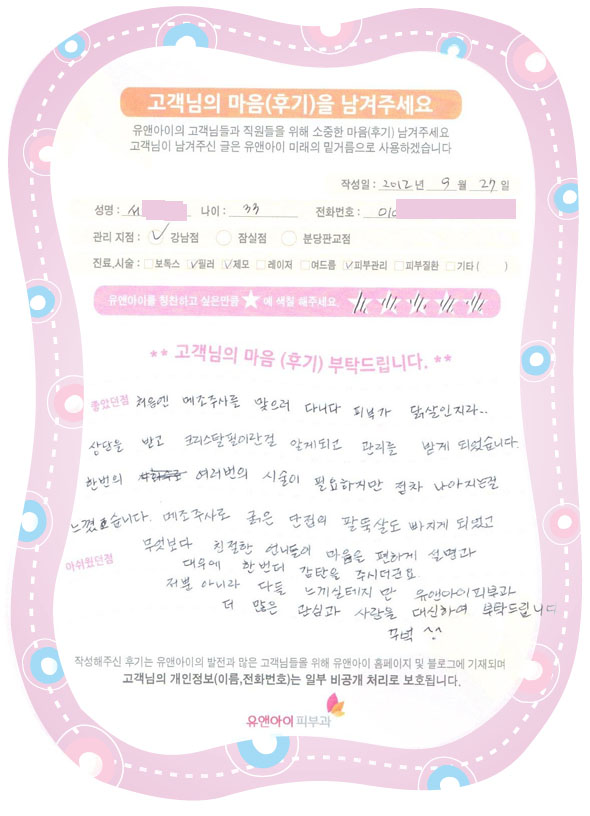 고객님의 마음(후기)을 남겨주세요
유앤아이의 고객님들과 직원들을 위해 소중한 마음(후기) 남겨주세요
고객님이 남겨주신 글은 유앤아이 미래의 밑거름으로 사용하겠습니다
작성일 : 2012 년 9 월 27 일
성명 : 서 나이 : 33 전화번호 : 010
관리 지점 : 강남점 잠실점 분당판교점
진료,시술 : 보톡스 필러 제모 레이저 여드름 피부관리 피부질환 기타 ( )
유앤아이를 칭찬하고 싶은만큼 ★ 에 색칠 해주세요.
** 고객님의 마음 (후기) 부탁드립니다. **
좋았던점 처음엔 메조주사를 맞으러 다니다 피부가 닭살인지라..
상담을 받고 크리스탈필이란걸 알게되고 관리를 받게 되었습니다.
한번의 여러번의 시술이 필요하지만 점차 나아지는걸
느꼈습니다. 메조주사로 굵은 팔뚝살도 빠지게 되었고
무엇보다 친절한 언니들이 마음을 편하게 설명과
아쉬웠던점 대우에 한번더 감탄을 주시더군요.
저뿐 아니라 다들 느끼실테지만 유앤아이피부과
더 많은 관심과 사랑을 대신하여 부탁드립니다
꾸벅 ^^
작성해주신 후기는 유앤아이의 발전과 많은 고객님들을 위해 유앤아이 홈페이지 및 블로그에 기재되며
고객님의 개인정보(이름,전화번호)는 일부 비공개 처리로 보호됩니다.
유앤아이피부과